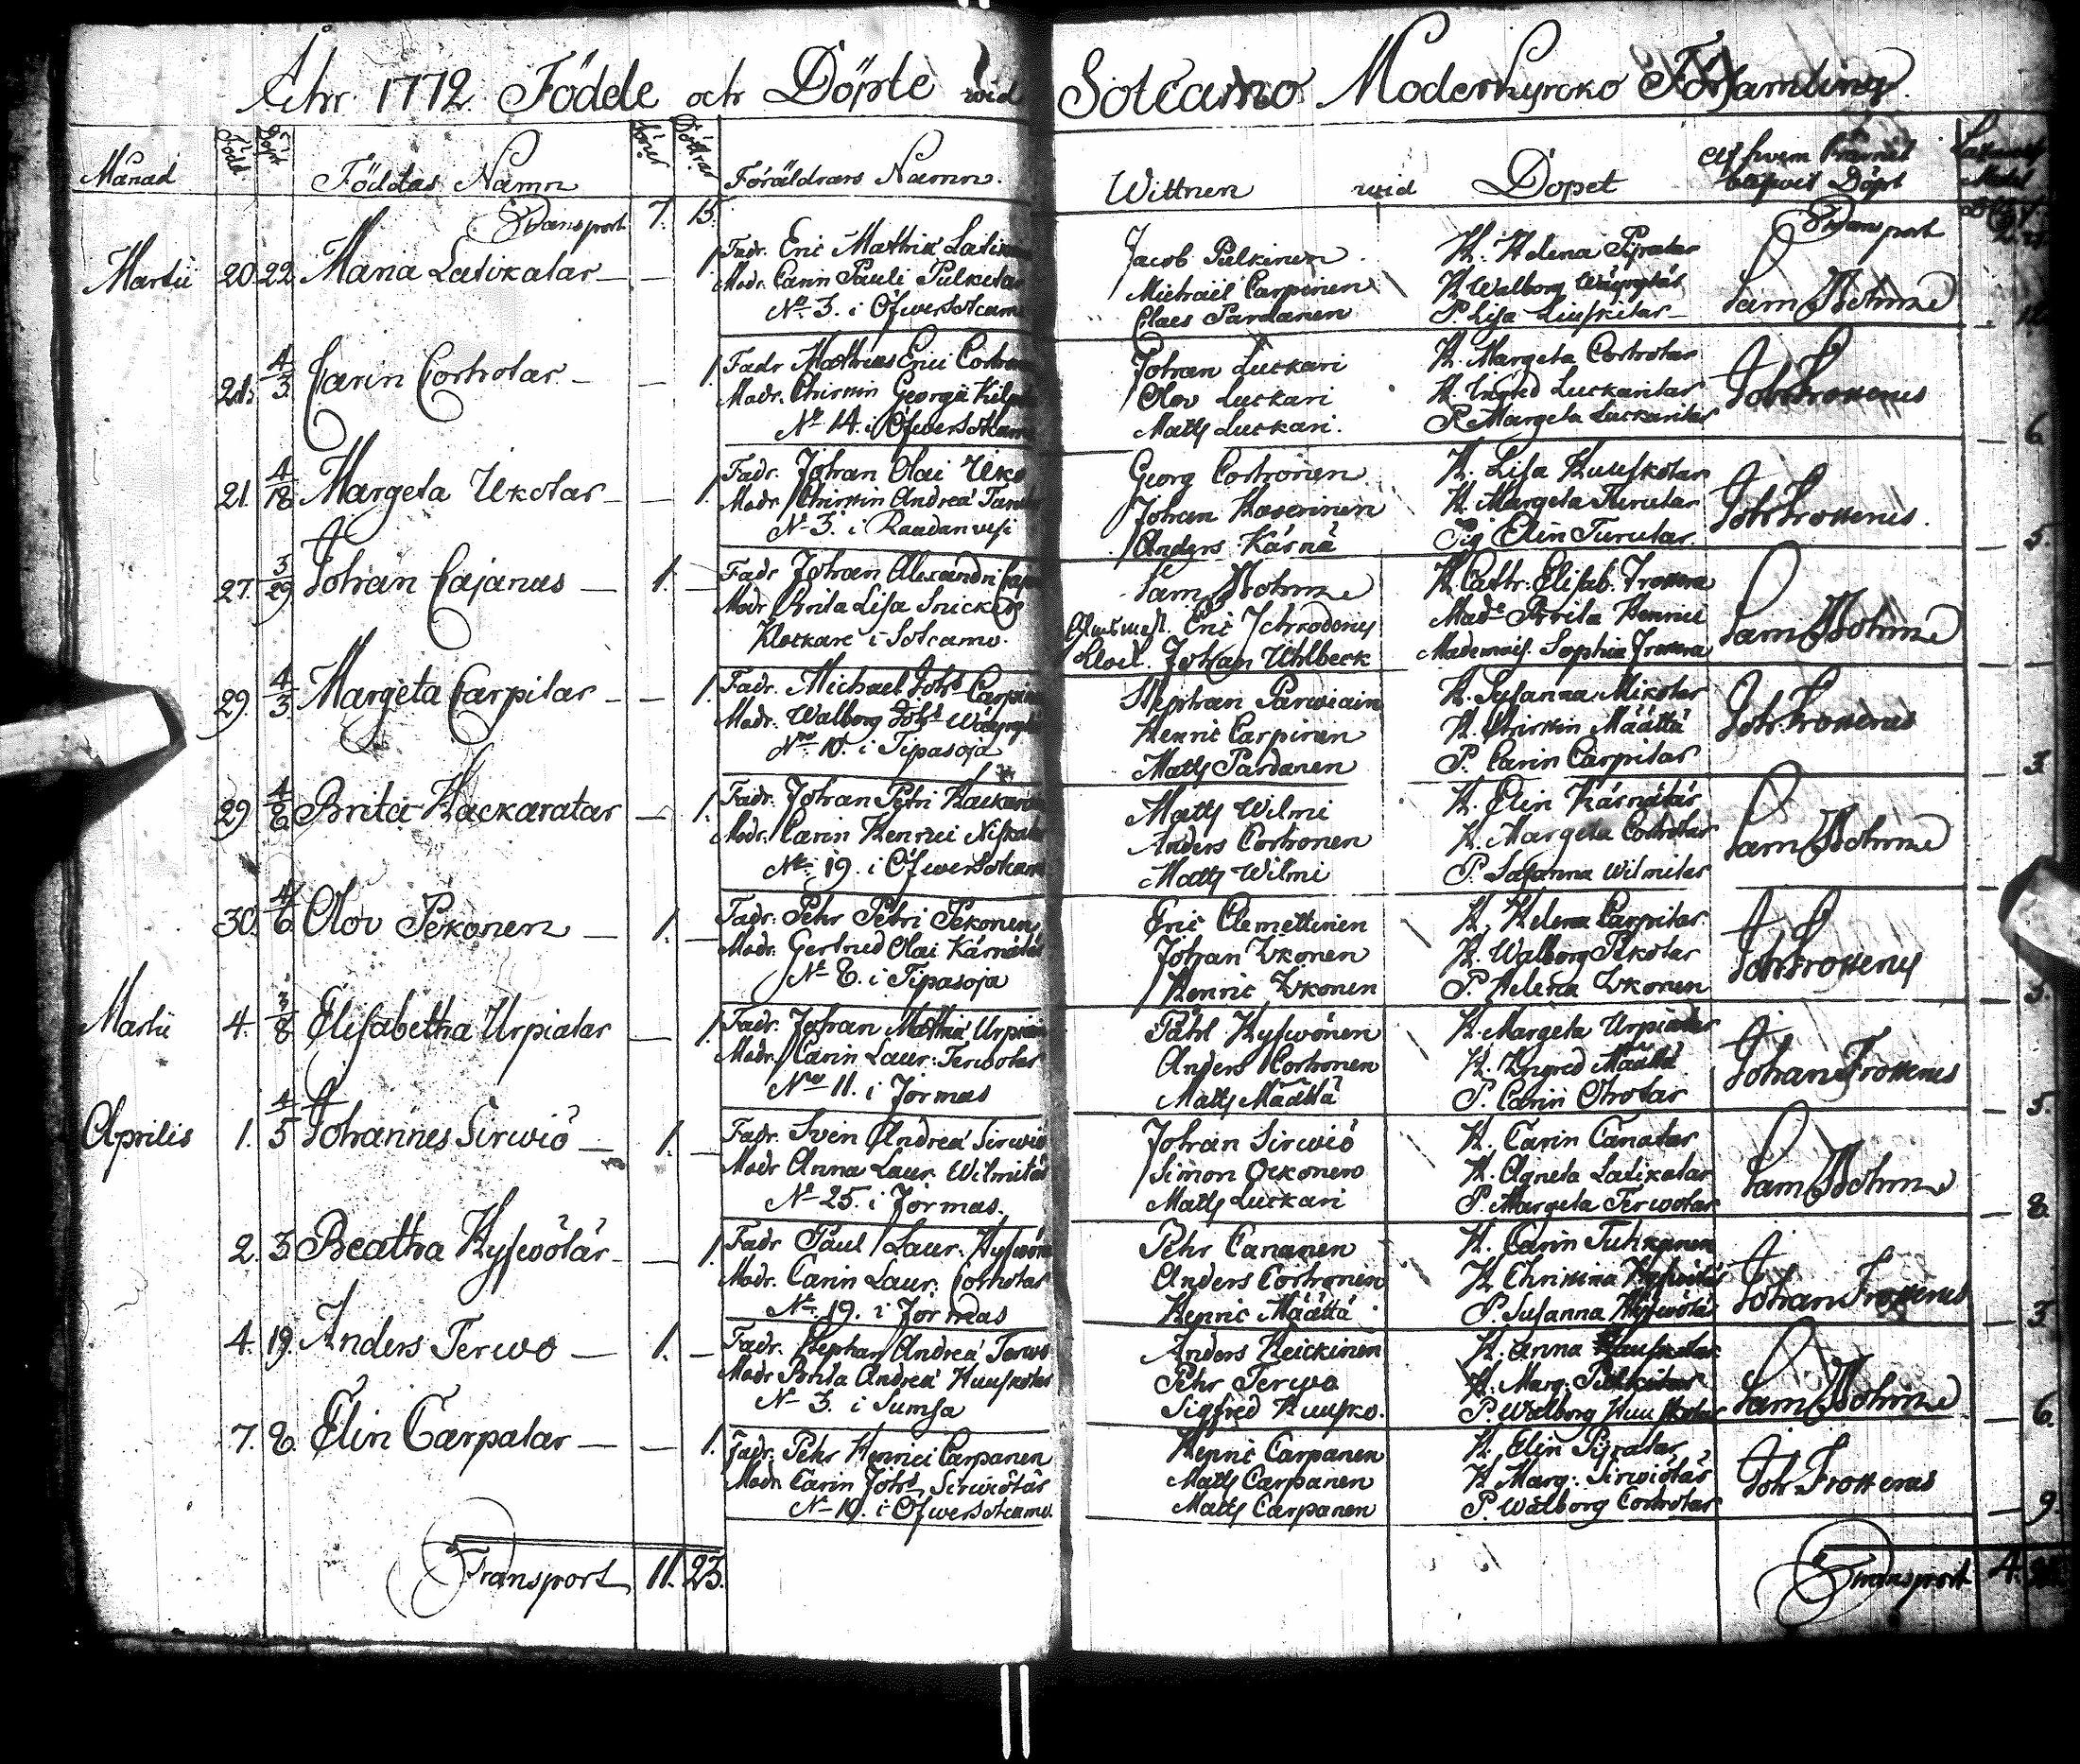 Åhr 1772 Födde och Döpte wid Sotcamo Moderkyrcko Församling.
Månad Födde Döpte Föddas Namn Söner Döttrar Föräldrars Namn. Wittnen wid Dopet Af hwem Barnet blifwit Döpt
Transport 7. 15. Transport
Martii 20. 22. Maria Latikatar — — 1.
Fadr. Eric Matthiæ
Modr. Carin Pauli Pulkitar
No 3. i Öfwersotcamo
Jacob Pulkinen
Michaël Carpinen
Claes Pardanen
H. Helena Pyratar
H. Walborg
P. Lisa Liuskitar
Sam Bohm
21. 4/3 Carin Corhotar — — 1.
Fadr Mathias Erici
Modr. Christin Georgii
No 14. i Öfwersotcamo
Johan Luckari
Olov Luckari
Matts Luckari.
H. Margeta Corhotar
H. Ingred Luckaritar
P. Margeta Luckaritar
Joh Frosterus
6.
21. 4/18 Margeta Ukotar — — 1.
Fadr. Johan Olai Uko
Modr. Christin Andreæ
No 3. i Raadanvesi
Georg Corhonen
Johan
Anders Kärnä
H. Lisa Huuskotar
H. Margeta Turutar
Pig Elin Turutar.
Joh Frosterus.
5.
27. 3/29 Johan Cajanus — 1. —
Fadr Johan Alexandri
Modr Brita Lisa
Klockare i Sotcamo.
Sam Bohm
Eric
Johan Uhlbeck
H. Cathr. Elisab. Frostera
Brita
Mademois. Sophia Frostera
Sam Bohm
29. 4/3 Margeta Carpitar — — 1.
Fadr. Michael Johs
Modr. Walborg Johs
No 10. i Tipasoja
Stephan
Henric Carpinen
Matts Pardanen
H. Susanna Mikotar
H. Christin Määttä
P. Carin Carpitar
Joh. Frosterus
3.
29 4/6 Brita Hackaratar — 1.
Fadr. Johan Petri
Modr. Carin Henrici
No 19. i Öfwersotcamo
Matts Wilmi
Anders Corhonen
Matts Wilmi
H. Elin Kärnätär
H. Margeta Corhotar
P. Susanna Wilmitar
Sam Bohm
30. 4/6 Olov Pekonen — 1. —
Fadr. Pehr Petri Pekonen
Modr. Gertrud Olai Kärnätär
No 8. i Tipasoja
Eric Clemettinen
Johan Ikonen
Henric Ikonen
H. Helena Carpitar
H. Walborg
P. Helena Ikonen
Joh Frosterus
Martii 4. 3/8 Elisabetha Urpiatar — 1.
Fadr. Johan Matthiæ
Modr. Carin Laur: Terwotar
No 11. i Jormas
Påhl Hyswönen
Anders Corhonen
Matts Määttä
H. Margeta Urpiatar
H. Ingred Määttä
P. Carin
Johan Frosterus
5.
Aprilis 1. 4/5 Johannes Sirwiö — 1. —
Fadr. Sven Andreæ Sirwiö
Modr Anna Laur. Wilmitär
No 25. i Jormas.
Johan Sirwiö
Simon
Matts Luckari
H. Carin Canatar
H. Agneta Latikatar
P. Margeta Terwotar
Sam Bohm
8.
2. 3 Beatha Hyswötär — — 1.
Fadr Paul Laur.
Modr. Carin Laur. Corhotar
No 19. i Jormas
Pehr Cananen
Anders Corhonen
Henric Määttä
H. Carin Tuhkanen
H. Christina
P. Susanna Hyswötär
Johan Frosterus
3
4. 19. Anders Terwo — 1. —
Fadr. Stephan Andreæ Terwo
Modr Brita Andreæ Huuskotar
No 3. i Sumsa
Anders Heickinen
Pehr Terwo
Sigfred Huusko.
H. Anna
H. Marg: Pulkitar
P. Walborg Huuskotar
Sam Bohm
6.
7. 8. Elin Carpatar — — 1.
Fadr: Pehr Henrici Carpanen
Modr. Carin Johs Sirwiötär
No 10. i Öfwersotcamo.
Henric Carpanen
Matts Carpanen
Matts Carpanen
H. Elin Pyratar
H. Marg: Sirwiötär
P. Walborg Corhotar
Joh. Frosterus
9.
Transport 11. 23. Transport 4.